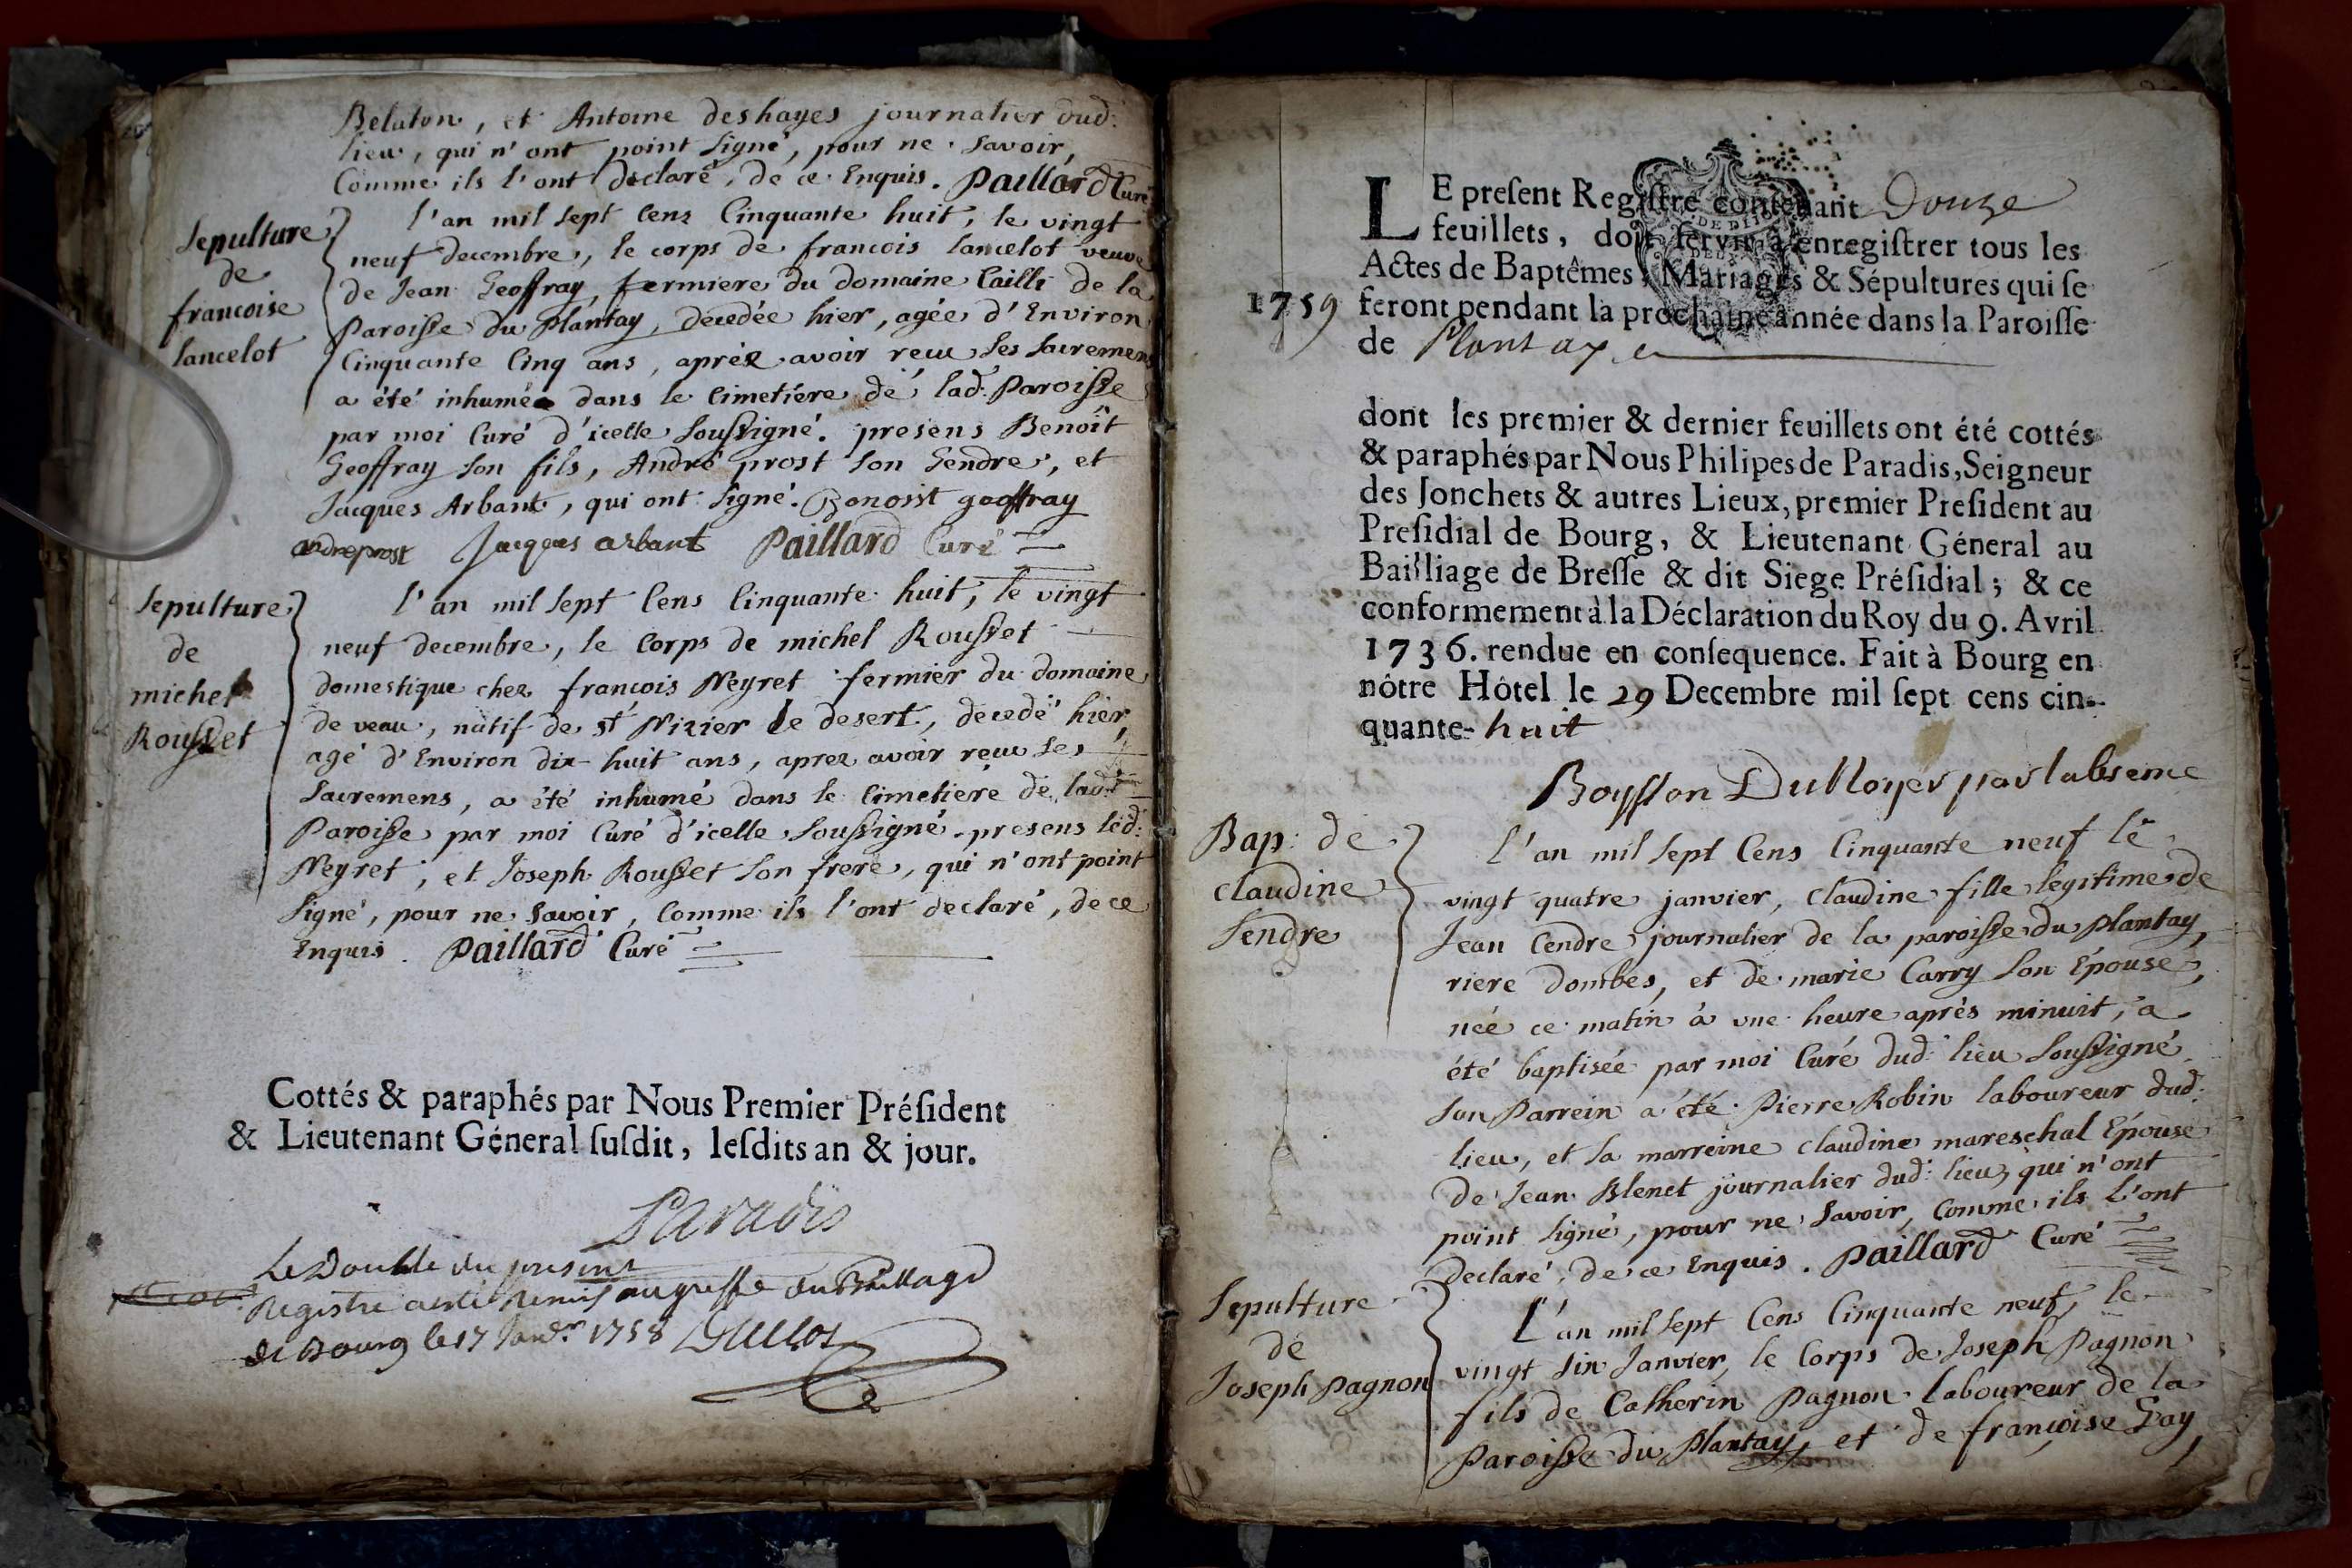 Belaton, et Antoine deshayes journalier dud:
lieu, qui n'ont point signé, pour ne savoir,
Comme ils l'ont declaré, de ce Enquis. Paillard Curé
Sepulture
de
francoise
lancelot
l'an mil sept Cens Cinquante huit, le vingt
neuf decembre, le corps de francois lancelot veuve
de Jean Geoffray, fermiere du domaine Cailli de la
Paroisse du Plantay, décedée hier, agée d'Environ
Cinquante Cinq ans, aprèz avoir reçu ses sacremens
a été inhumée dans le Cimetiére de lad: Paroisse
par moi Curé d'icelle soussigné. presens Benoît
Geoffray son fils, André prost son Gendre, et
Jacques Arbant, qui ont signé. Bonoist geoffray
andre prost Jacques arbant Paillard Curé
Sepulture
de
michel
Rousset
l'an mil sept Cens Cinquante huit, le vingt
neuf decembre, le Corps de michel Rousset
domestique chez françois Neyret fermier du domaine
de veau, natif de st Nizier le desert, decedé hier,
agé d'Environ dix-huit ans, aprez avoir reçu ses
Sacremens, a été inhumé dans le Cimetiere de lad:
Paroisse par moi Curé d'icelle soussigné. presens led:
Neyret, et Joseph Rousset son frere, qui n'ont point
signé, pour ne savoir, Comme ils l'ont declaré, de ce
Enquis. Paillard Curé
Cottés & paraphés par Nous Premier Préſident
& Lieutenant Géneral ſuſdit, leſdits an & jour.
Paradis
Le Double du present
Registre a esté remis au greffe du Bailliage
de Bourg le 17 Janv.r 1758 Dullot
LE preſent Regiſtre contenant Douze
feuillets, doit ſervir à enregiſtrer tous les
Actes de Baptêmes, Mariages & Sépultures qui ſe
1759 feront pendant la prochaine année dans la Paroiſſe
de Plantay
dont les premier & dernier feuillets ont été cottés
& paraphés par Nous Philipes de Paradis, Seigneur
des Jonchets & autres Lieux, premier Preſident au
Preſidial de Bourg, & Lieutenant Géneral au
Bailliage de Breſſe & dit Siege Préſidial; & ce
conformement à la Déclaration du Roy du 9. Avril
1736. rendue en conſequence. Fait à Bourg en
nôtre Hôtel le 29 Decembre mil ſept cens cin-
quante-huit
Boysson DuNoyer par labsence
Bap: de
claudine
Sendre
l'an mil sept Cens Cinquante neuf le
vingt quatre janvier, Claudine fille legitime de
Jean Cendre journalier de la paroisse du plantay,
riere dombes, et de marie Carry son Epouse,
née ce matin à une heure après minuit, a
été baptisée par moi Curé dud: lieu soussigné
son Parrein a été Pierre Robin laboureur dud:
lieu, et sa marreine Claudine mareschal Epouse
de Jean Blenet journalier dud: lieu, qui n'ont
point signé, pour ne savoir, Comme ils l'ont
declaré, de ce Enquis. Paillard Curé
Sepulture
de
Joseph Pagnon
L'an mil sept Cens Cinquante neuf, le
vingt six Janvier, le Corps de Joseph Pagnon
fils de Catherin Pagnon laboureur de la
Paroisse du Plantay, et de françoise Gay,